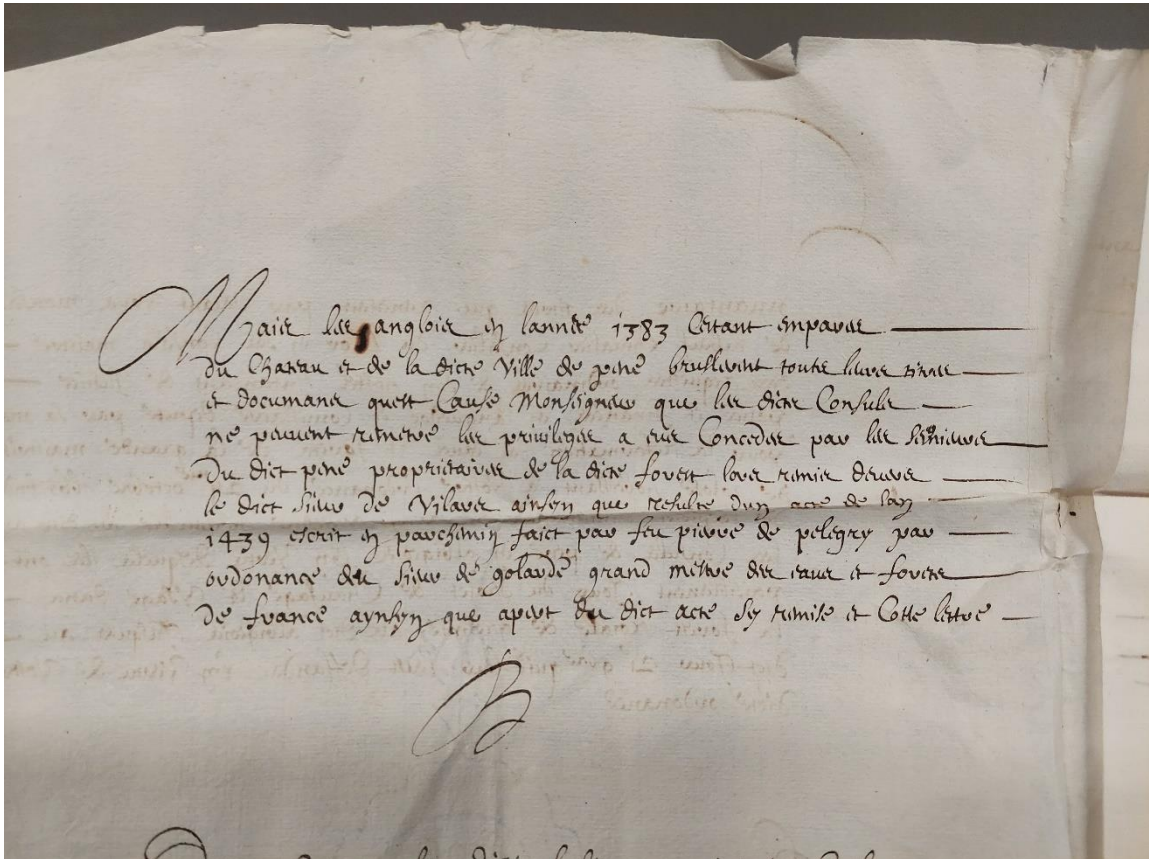 Mais les anglois en lannee 1383 Cestant empares
du Chateau et de la dicte Ville de pene bruslarent toute leurs titres
et documans quest Cause Monseigneur que les dicts Consuls
ne peuvent remetre les privileges a eux Concedes par les senieurs
Du dict pene proprietaires de la dicte forest lors remis devers
le dict sieur de Vilars ainsyn que resulte dun acte de lan
1439 escrit en parchemin faict par feu pierre de pelegry par
ordonance deu sieur de golarde grand mestre des eaux et forets
de france aynsyn que apert du dict acte sy remise et Cotte lettre
B